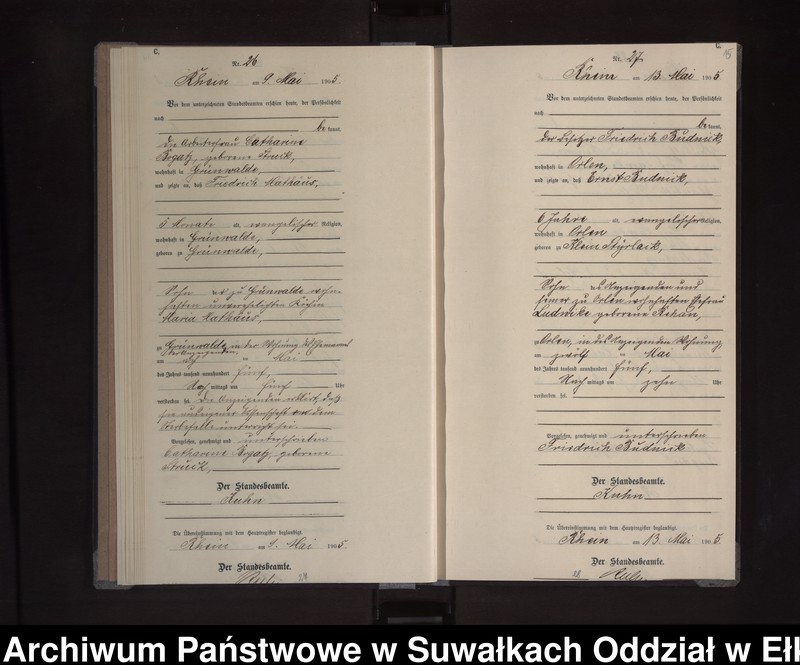 C.
Nr. 26
Rhein am 9. Mai 1905.
Vor dem unterzeichneten Standesbeamten erschien heute, der Persönlichkeit
nach
be kannt,
die Arbeiterfrau Catharine
geborene Struik,
wohnhaft in Grünwalde,
und zeigte an, daß Friedrich Mathäus,
5 Monate alt, evangelischer Religion,
wohnhaft in Grünwalde,
geboren zu Grünwalde,
Sohn der zu Grünwalde wohn-
haften unverehelichten Köchin
Maria Mathäus,
zu Grünwalde, in der Wohnung
am Mai
des Jahres tausend neunhundert fünf,
Nachmittags um fünf Uhr
verstorben sei. Die Anzeigende erklärt, daß
sie aus eigener Wissenschaft von dem
Sterbefalle unterrichtet sei.
Vorgelesen, genehmigt und unterschrieben
Catharine geborene
Struik,
Der Standesbeamte.
Kuhn
Die Übereinstimmung mit dem Hauptregister beglaubigt.
Rhein am 9. Mai 1905.
Der Standesbeamte.
C.
Nr. 27
Rhein am 13. Mai 1905
Vor dem unterzeichneten Standesbeamten erschien heute, der Persönlichkeit
nach
be kannt,
der Besitzer Friedrich Budnik,
wohnhaft in Orlen,
und zeigte an, daß Ernst Budnik,
6 Jahre alt, evangelischer Religion,
wohnhaft in Orlen
geboren zu Klein Stürlack,
Sohn des Anzeigenden und
seiner zu Orlen wohnhaften Ehefrau
Ludwike geborene
zu Orlen, in des Anzeigenden Wohnung
am zwölf ten Mai
des Jahres tausend neunhundert fünf,
Nachmittags um zehn Uhr
verstorben sei.
Vorgelesen, genehmigt und unterschrieben
Friedrich Budnik
Der Standesbeamte.
Kuhn
Die Übereinstimmung mit dem Hauptregister beglaubigt.
Rhein am 13. Mai 1905.
Der Standesbeamte.
Archiwum Państwowe w Suwałkach Oddział w Ełk